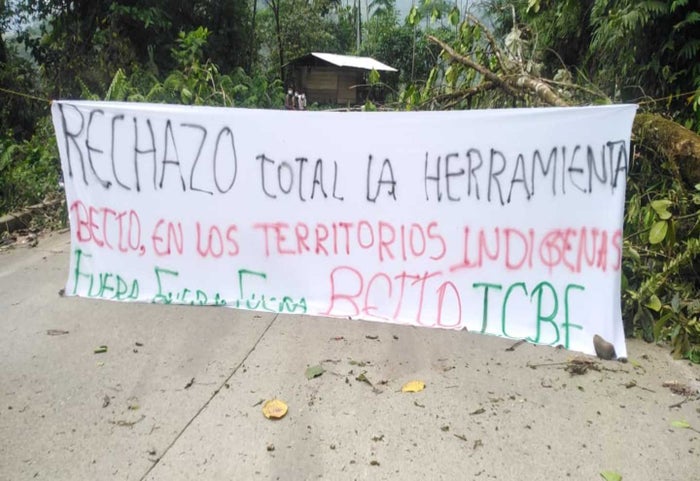 RECHAZO TOTAL LA HERRAMIENTA
BETTO, EN LOS TERRITORIOS INDIGENAS
FUERA FUERA FUERA BETTO ICBF